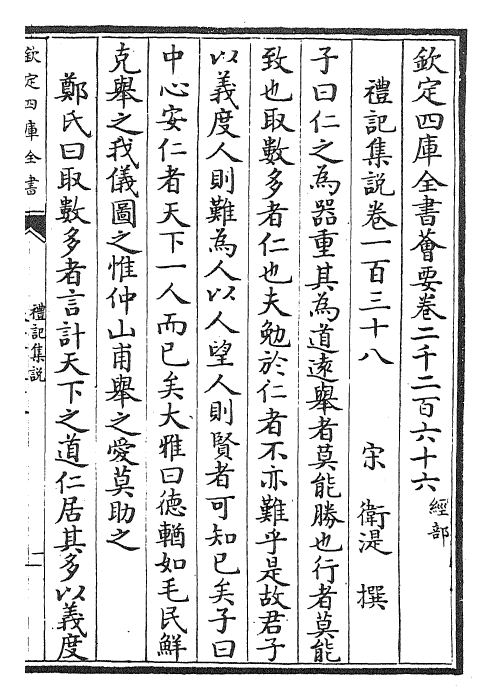 欽定四庫全書薈要卷二千二百六十六 經部
禮記集說卷一百三十八 宋 衛湜 撰
子曰仁之為器重其為道遠舉者莫能勝也行者莫能
致也取數多者仁也夫勉於仁者不亦難乎是故君子
以義度人則難為人以人望人則賢者可知已矣子曰
中心安仁者天下一人而已矣大雅曰德輶如毛民鮮
克舉之我儀圖之惟仲山甫舉之愛莫助之
鄭氏曰取數多者言計天下之道仁居其多以義度
欽定四庫全書
禮記集說